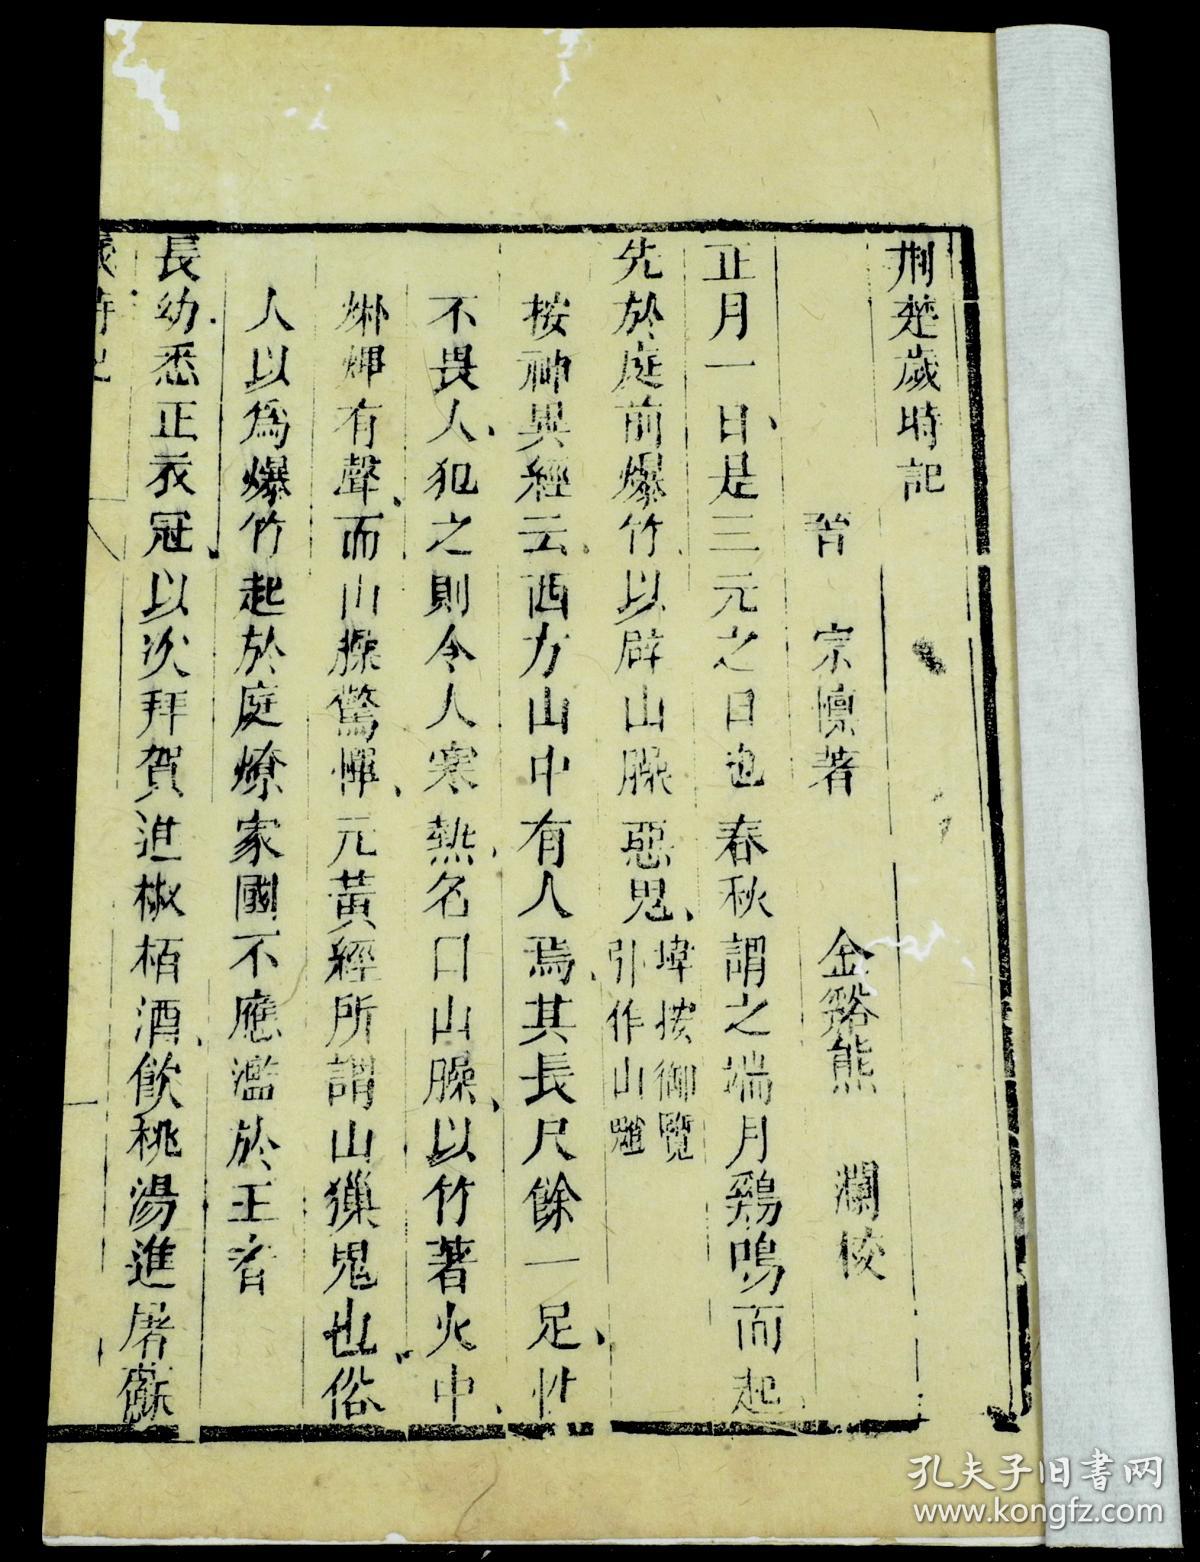 荆楚歲時記
晉　宗懍著　　金谿熊　瀾校
正月一日是三元之日也春秋謂之端月鷄鳴而起
先於庭前爆竹以辟山臊惡鬼
埻按御覽
引作山魈
按神異經云西方山中有人焉其長尺餘一足性
不畏人犯之則令人寒熱名曰山臊以竹著火中
烞熚有聲而山臊驚憚元黃經所謂山㺐鬼也俗
人以爲爆竹起於庭燎家國不應濫於王者
長幼悉正衣冠以次拜賀進椒栢酒飲桃湯進屠蘇
歲時記
孔夫子旧书网
www.kongfz.com